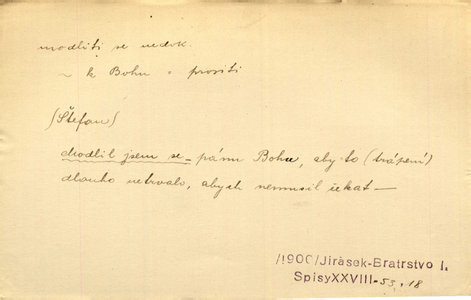 modliti se nedok.
~ k Bohu = prositi
/Štefan/
Modlil jsem se pánu Bohu, aby to (trápení)
dlouho netrvalo, abych nemusil čekat —
/1900/Jirásek-Bratrstvo I.
SpisyXXVIII-53,18